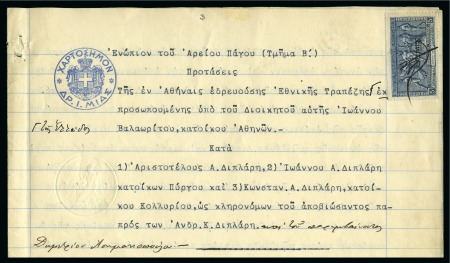 3
Ἐνώπιον τοῦ Ἀρείου Πάγου (Τμῆμα Β.')
Προτάσεις
ΧΑΡΤΟΣΗΜΟΝ
ΔΡ. Ι. ΜΙΑΣ
Τῆς ἐν Ἀθήναις ἑδρευούσης Ἐθνικῆς Τραπέζης ἐκ
προσωπουμένης ὑπὸ τοῦ Διοικητοῦ αὐτῆς Ἰωάννου
Βαλαωρίτου, κατοίκου Ἀθηνῶν.-
Κατὰ
1) Ἀριστοτέλους Α. Διπλάρη, 2) Ἰωάννου Α. Διπλάρη
κατοίκων Πύργου καὶ 3) Κωνσταν. Α. Διπλάρη, κατοί-
κου Κολλυρίου, ὡς κληρονόμων τοῦ ἀποβιώσαντος πα-
πρός των Ἀνδρ. Κ. Διπλάρη. καὶ τοῦ
Δημητρίου